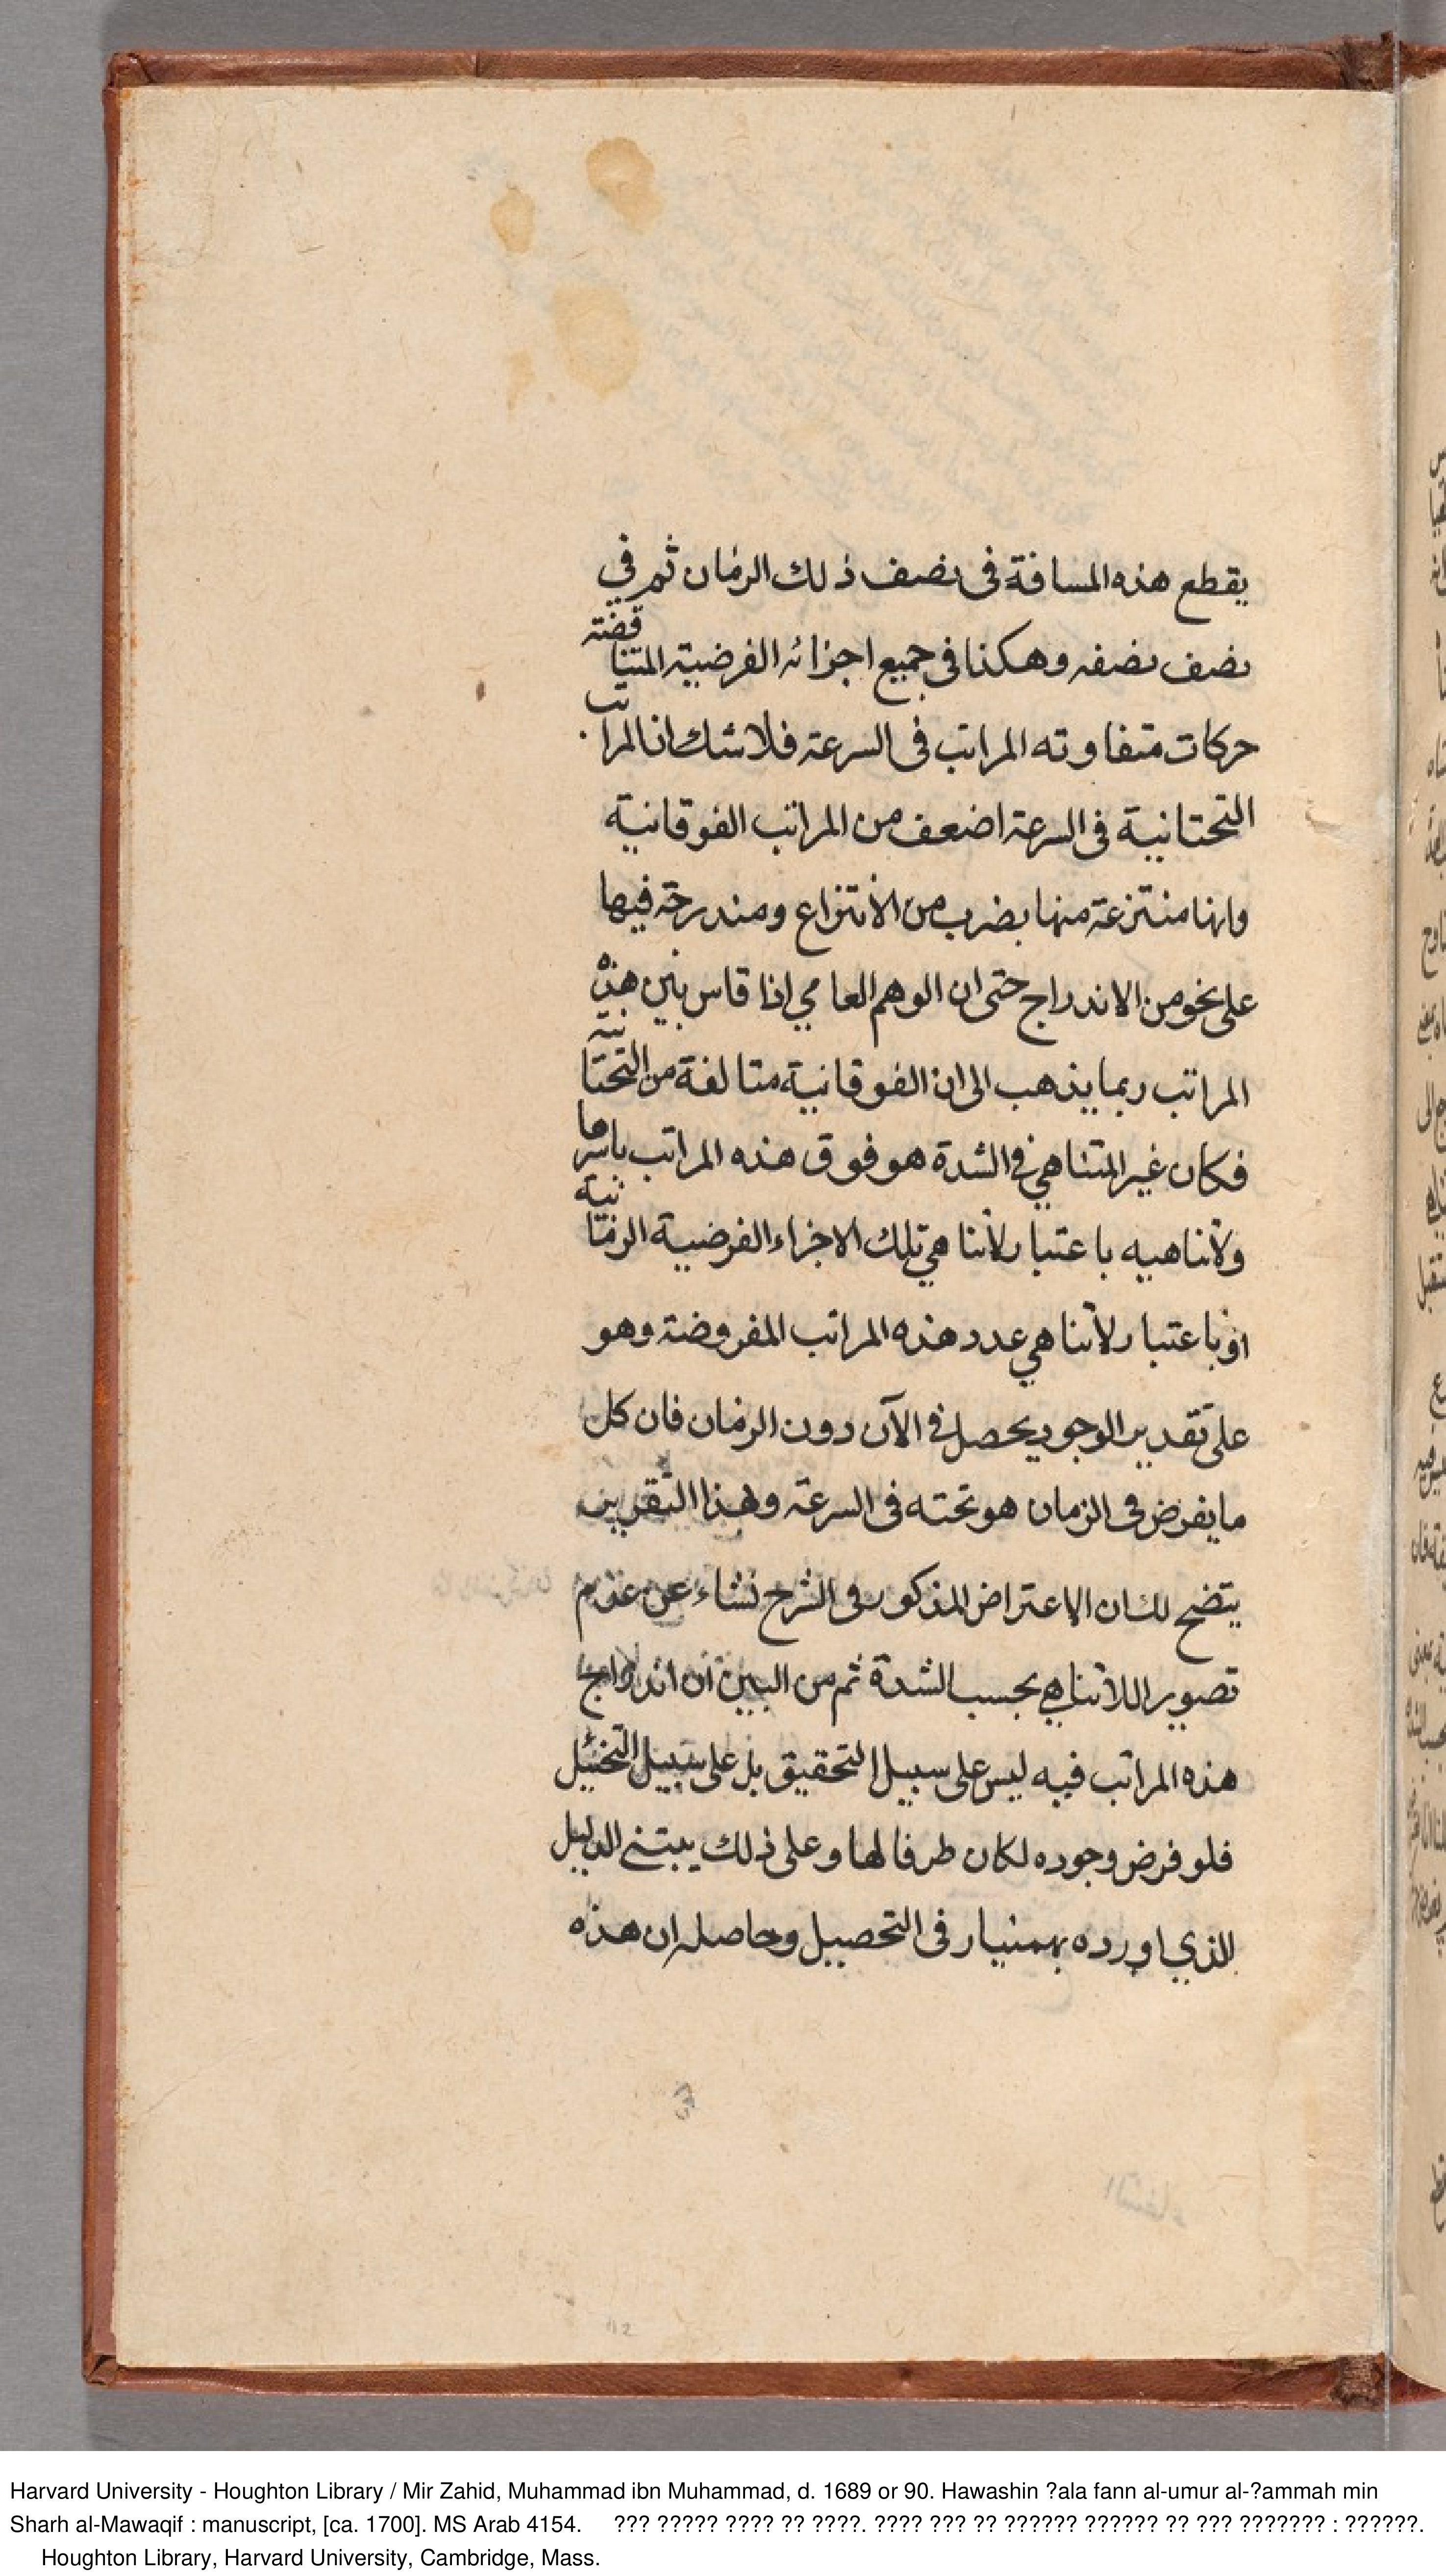 يقطع هذه المسافة فى نصف ذلك الزمان ثم في
نصف نصفه وهكذا فى جميع اجزائه الفرضية المتناقضة
حركات متفاوته المراتب فى السرعة فلا شك ان المراتب
التحتانية فى السرعة اضعف من المراتب الفوقانية
وانها منتزعة منها بضرب من الانتزاع ومندرجة فيها
على نحو من الاندراج حتى ان الوهم العامي اذا قاس بين هذه
المراتب ربما يذهب الى ان الفوقانية متالفة من التحتانية
فكان غير المتناهي في الشدة هو فوق هذه المراتب باسرها
ولاتناهيه باعتبار لاتناهي تلك الاجزاء الفرضية الزمانية
او باعتبار لاتناهي عدد هذه المراتب المفروضة وهو
على تقدير الوجود يحصل في الآن دون الزمان فان كل
ما يفرض فى الزمان هو تحته فى السرعة وبهذا التقرير
يتضح لك ان الاعتراض المذكور فى الشرح نشاء عن عدم
تصوير اللاتناهي بحسب الشدة ثم من البين ان اندراج
هذه المراتب فيه ليس على سبيل التحقيق بل على سبيل التخئيل
فلو فرض وجوده لكان طرفا لها وعلى ذلك يبتنى الدليل
الذي اورده بهمنيار فى التحصيل وحاصله ان هذه
Harvard University - Houghton Library / Mir Zahid, Muhammad ibn Muhammad, d. 1689 or 90. Hawashin ?ala fann al-umur al-?ammah min
Sharh al-Mawaqif : manuscript, [ca. 1700]. MS Arab 4154. ??? ????? ???? ?? ????. ???? ??? ?? ?????? ?????? ?? ??? ??????? : ??????.
Houghton Library, Harvard University, Cambridge, Mass.